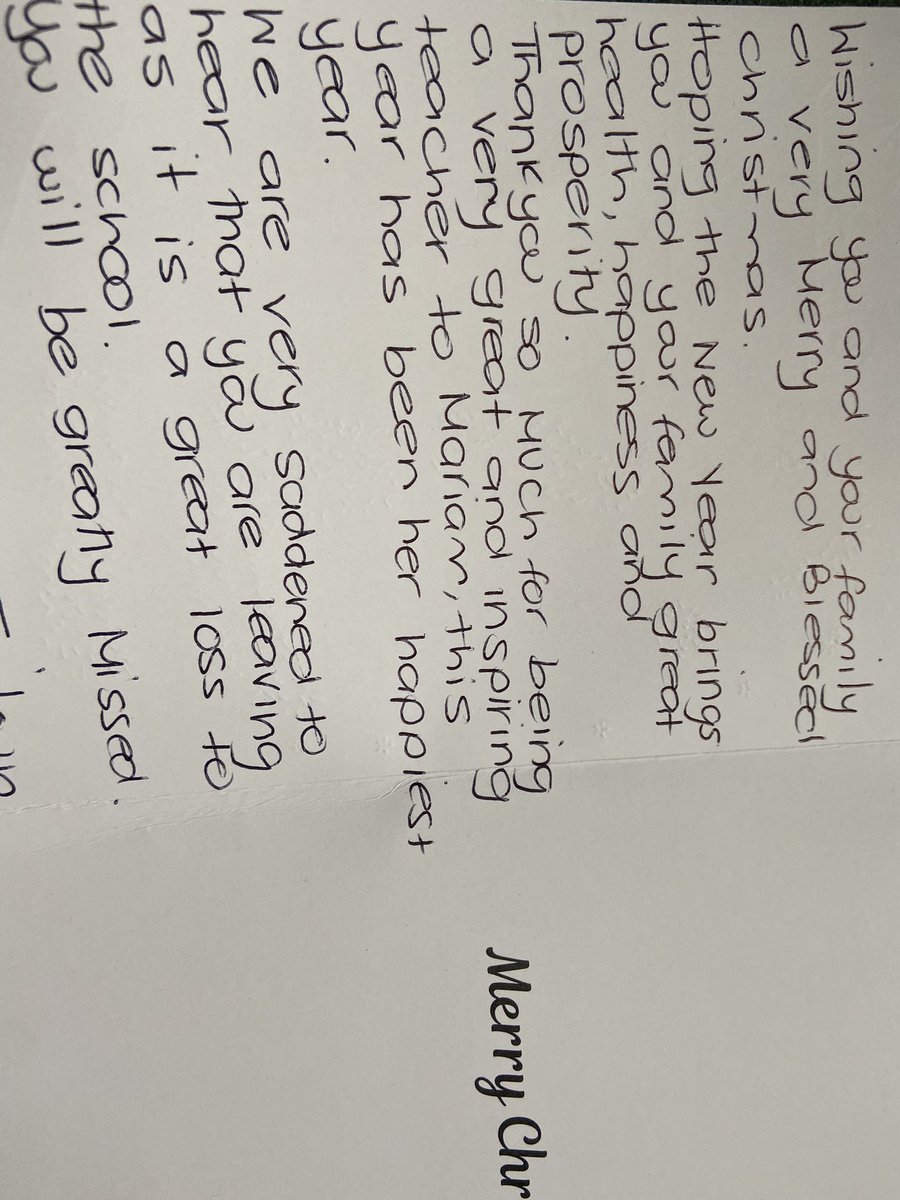 Wishing you and your family
a very Merry and Blessed
christmas.
Hoping the New Year brings
you and your family great
health, happiness and
prosperity.
Thankyou so Much for being
a very great and inspiring
teacher to Mariam, this
year has been her happiest
year.
We are very saddened to
hear that you are leaving
as it is a great loss to
the school.
you will be greatly Missed.
Merry Chr